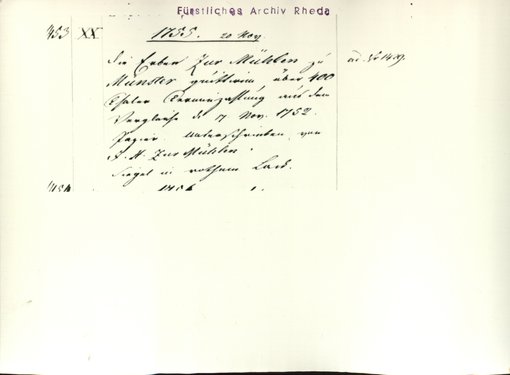 Fürstliches Archiv Rheda
453 XX. 1755. 20 Nov
die Erben Zur Mühlen zu
Münster quittiren über 400
Thaler Terminzahlung aus dem
Vergleiche de 7 Nov. 1752.
Papier. Unterschrieben von
J. H. Zur Mühlen.
Siegel in rothem Lack.